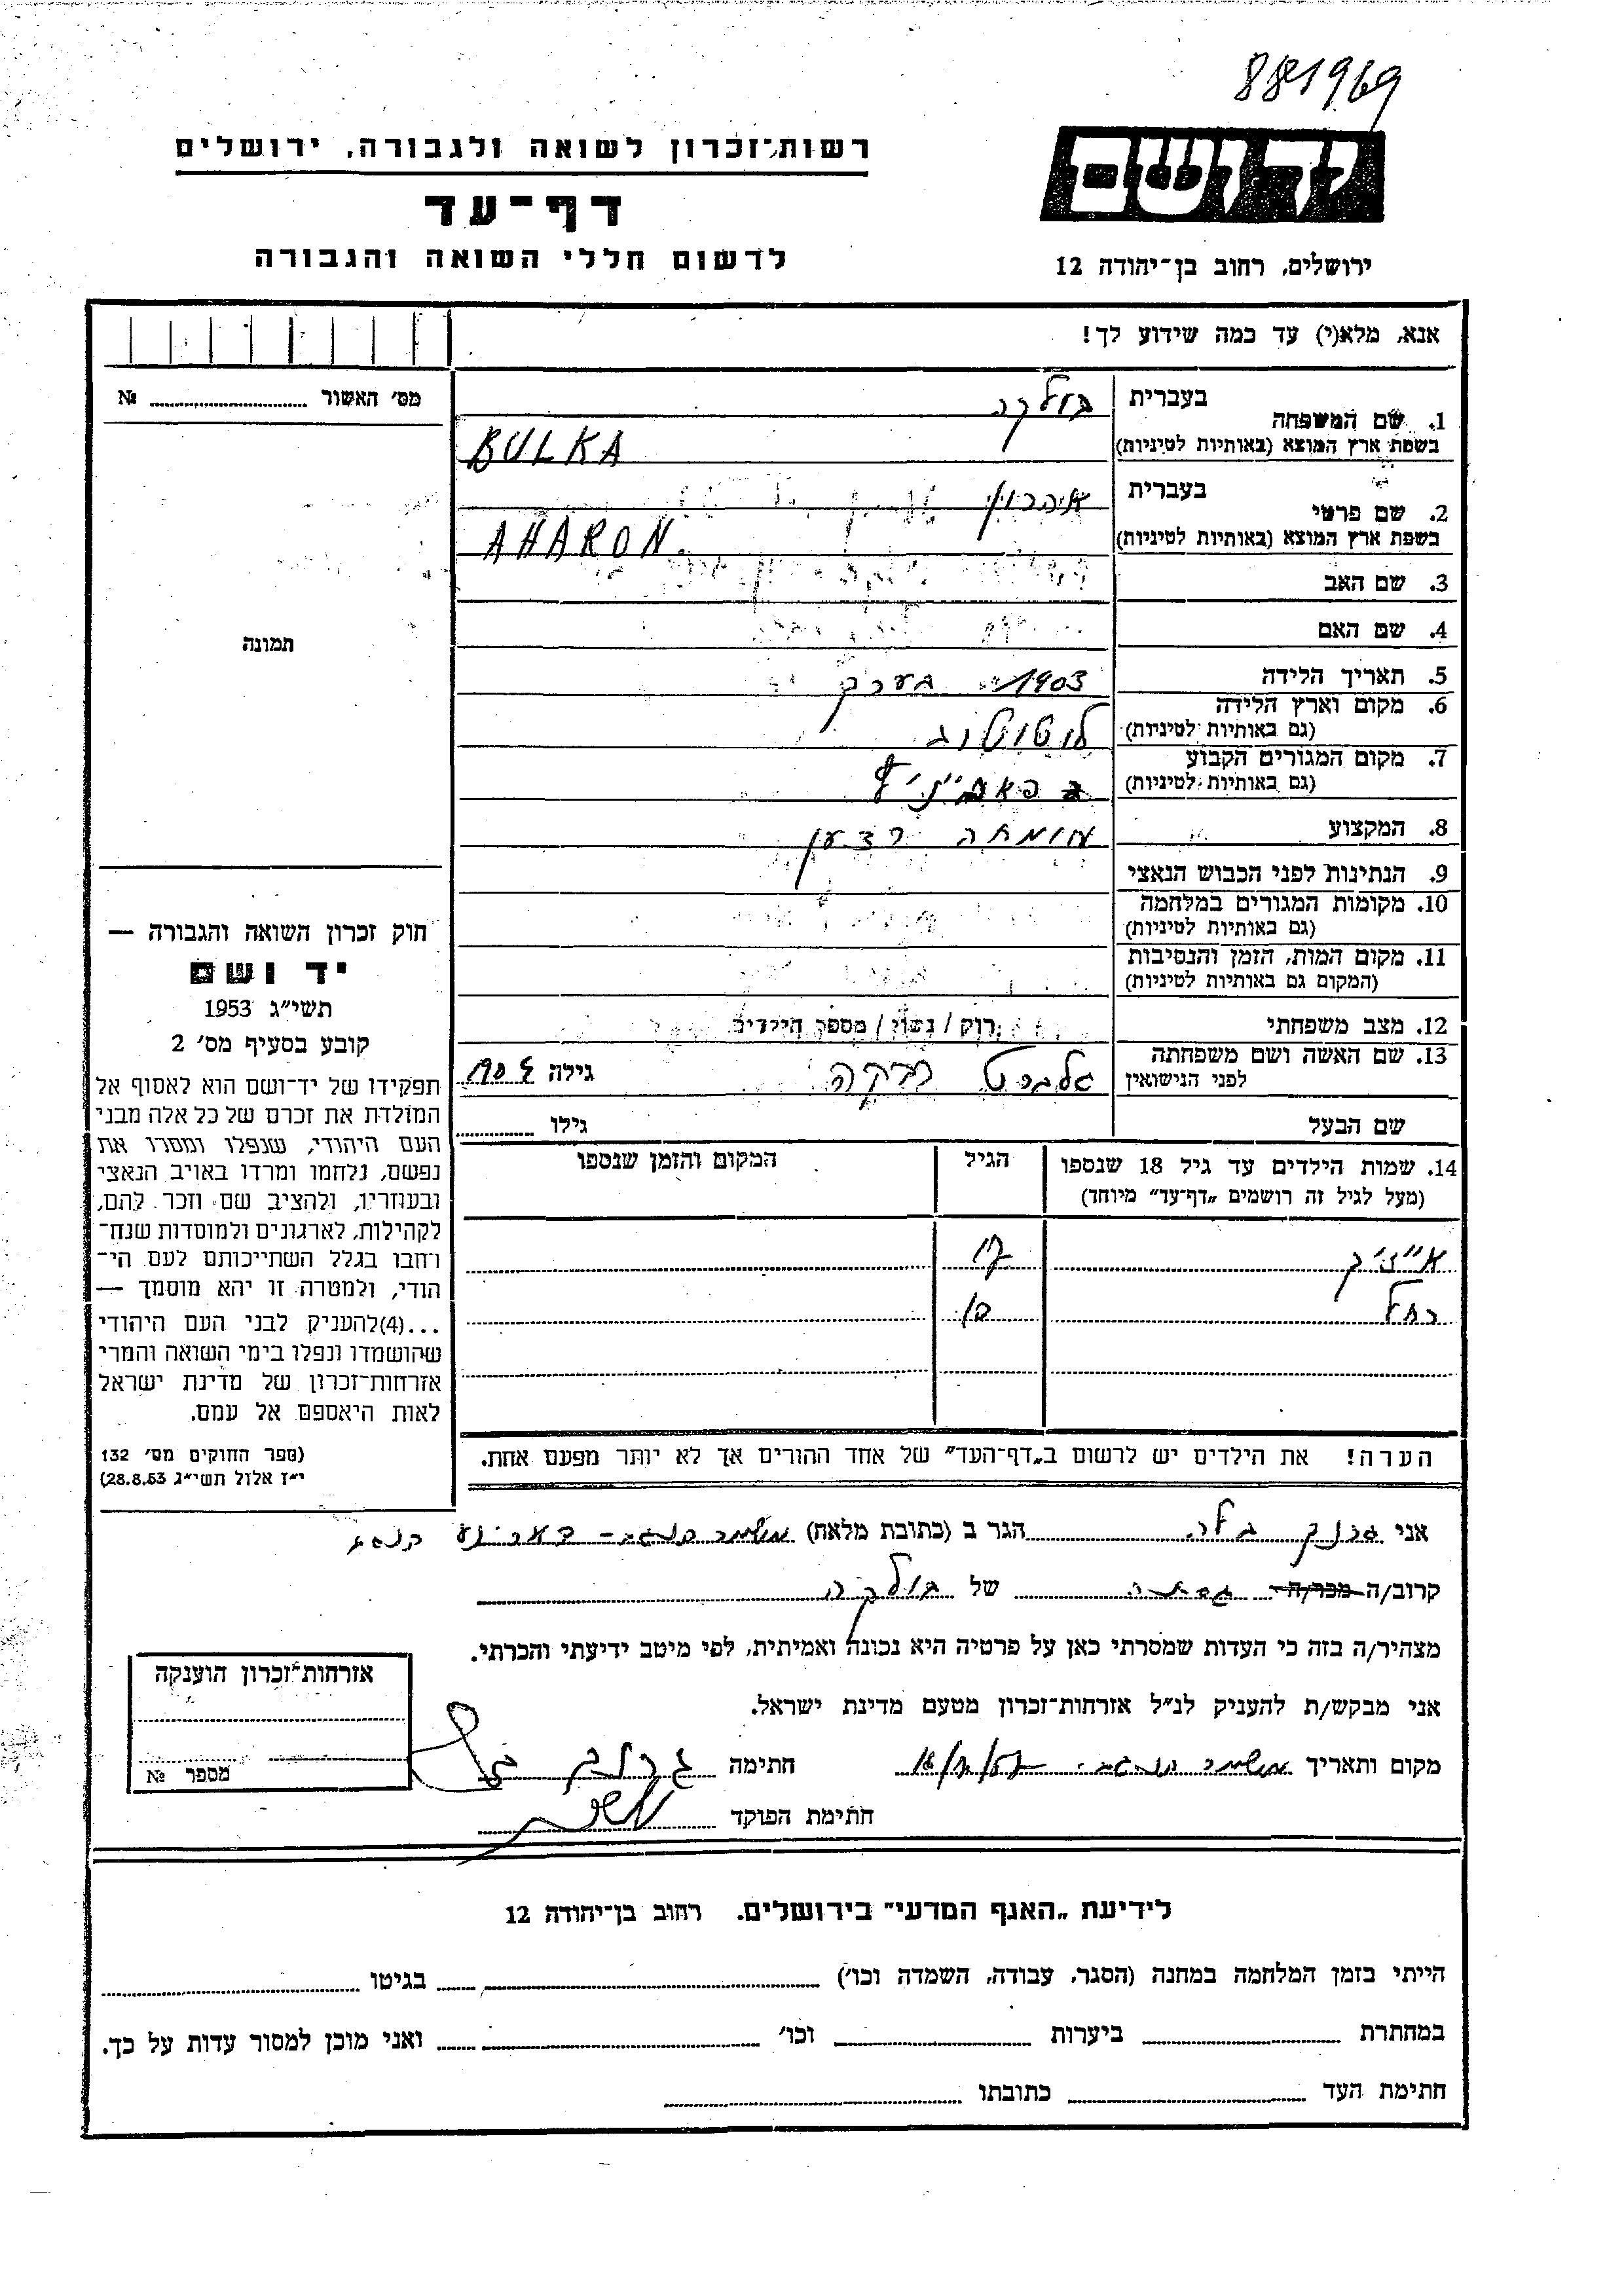 881969
רשות־זכרון לשואה ולגבורה, ירושלים
דף־עד
לרשום חללי השואה והגבורה
ידושם
ירושלים, רחוב בן־יהודה 12
אנא, מלא(י) עד כמה שידוע לך!
מס' האשור № ........
1. שם המשפחה בעברית בולקה
בשפת ארץ המוצא (באותיות לטיניות) BULKA
2. שם פרטי בעברית אהרון
בשפת ארץ המוצא (באותיות לטיניות) AHARON
3. שם האב
4. שם האם
תמונה
5. תאריך הלידה 1903 בערך
6. מקום וארץ הלידה
(גם באותיות לטיניות)
7. מקום המגורים הקבוע
(גם באותיות לטיניות)
8. המקצוע מומחה רצען
9. הנתינות לפני הכבוש הנאצי
10. מקומות המגורים במלחמה
(גם באותיות לטיניות)
11. מקום המות, הזמן והנסיבות
(המקום גם באותיות לטיניות)
12. מצב משפחתי רוק / נשוי / מספר הילדים
13. שם האשה ושם משפחתה
לפני הנישואין רבקה גילה
שם הבעל גילו
14. שמות הילדים עד גיל 18 שנספו הגיל המקום והזמן שנספו
(מעל לגיל זה רושמים „דף־עד" מיוחד)
אייזיק 17
רחל 10
הערה! את הילדים יש לרשום ב„דף־העד" של אחד ההורים אך לא יותר מפעם אחת.
חוק זכרון השואה והגבורה —
יד ושם
תשי"ג 1953
קובע בסעיף מס' 2
תפקידו של יד־ושם הוא לאסוף אל
המולדת את זכרם של כל אלה מבני
העם היהודי, שנפלו ומסרו את
נפשם, נלחמו ומרדו באויב הנאצי
ובעוזריו, ולהציב שם וזכר להם,
לקהילות, לארגונים ולמוסדות שנח־
רחבו בגלל השתייכותם לעם הי־
הודי, ולמטרה זו יהא מוסמך —
...(4)להעניק לבני העם היהודי
שהושמדו ונפלו בימי השואה והמרי
אזרחות־זכרון של מדינת ישראל
לאות היאספם אל עמם.
(ספר החוקים מס' 132
י"ז אלול תשי"ג 28.8.53)
אני הגר ב (כתובת מלאה) משמר הנגב
קרוב/ה מכר/ה של בולקה
מצהיר/ה בזה כי העדות שמסרתי כאן על פרטיה היא נכונה ואמיתית, לפי מיטב ידיעתי והכרתי.
אני מבקש/ת להעניק לנ"ל אזרחות־זכרון מטעם מדינת ישראל.
מקום ותאריך משמר הנגב חתימה
חתימת הפוקד
אזרחות־זכרון הוענקה
מספר №
לידיעת „האגף המדעי" בירושלים. רחוב בן־יהודה 12
הייתי בזמן המלחמה במחנה (הסגר, עבודה, השמדה וכו') בגיטו
במחתרת ביערות וכו' ואני מוכן למסור עדות על כך.
חתימת העד כתובתו